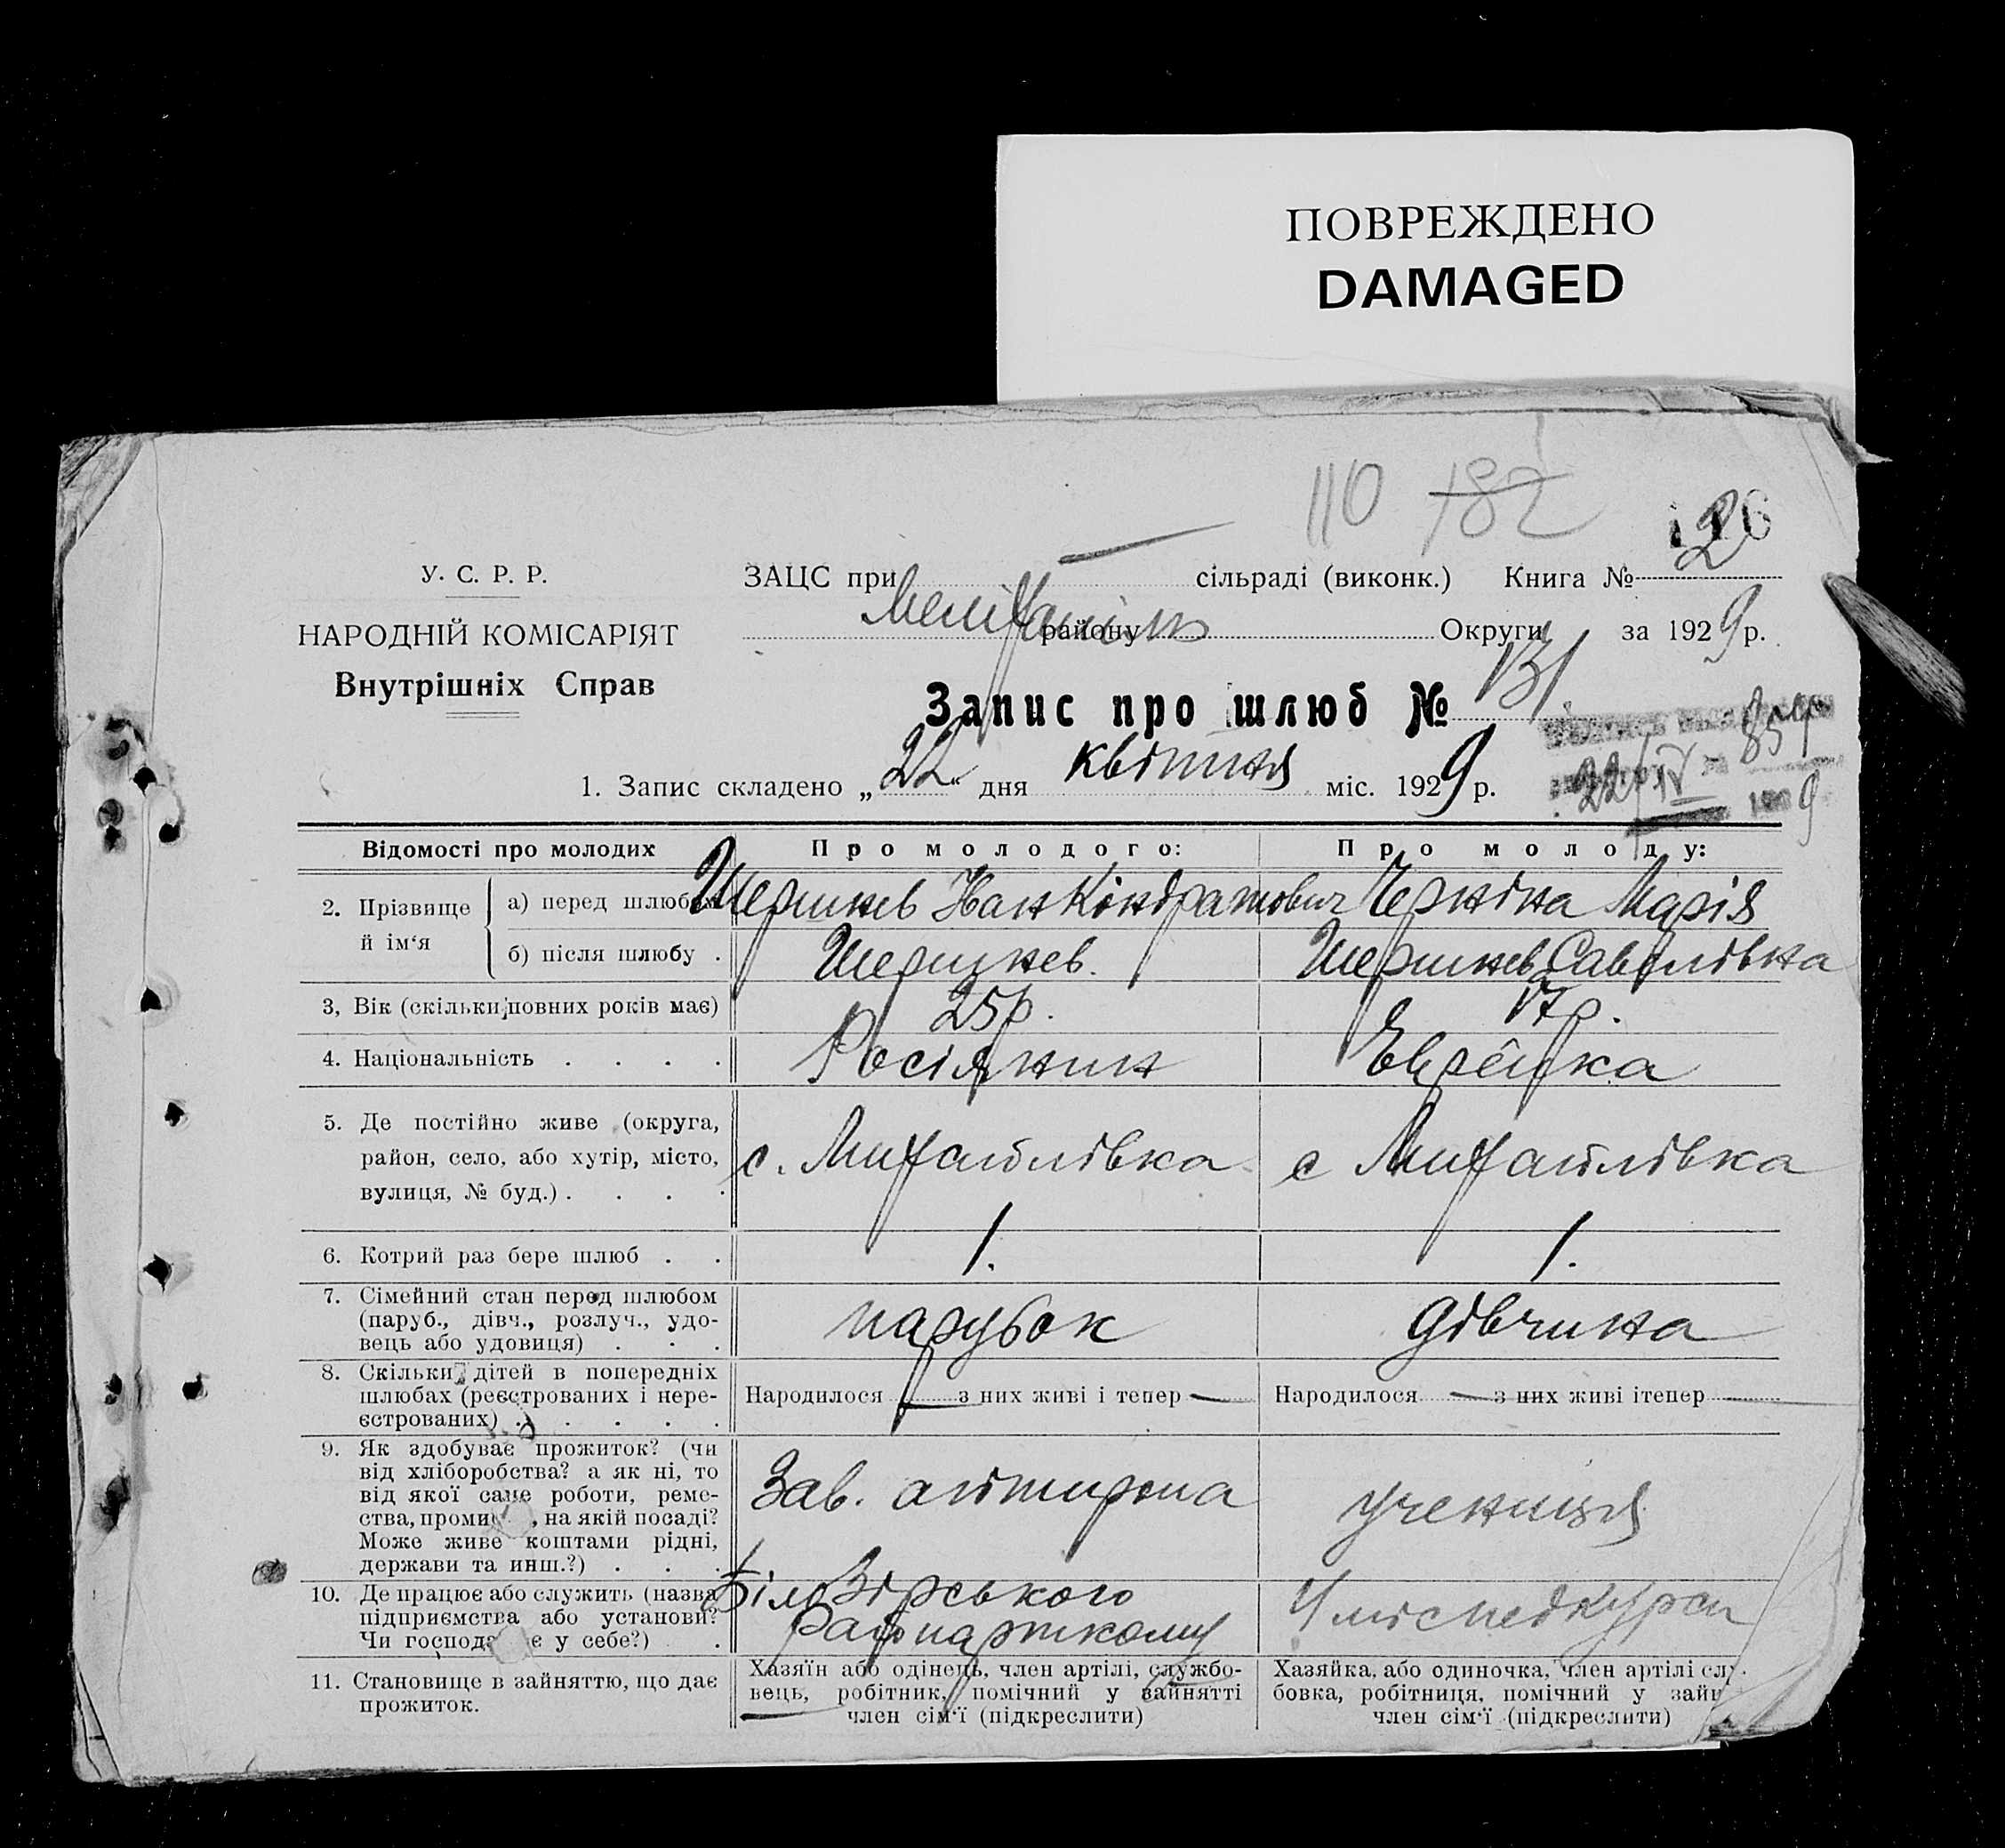 ПОВРЕЖДЕНО
DAMAGED
110 182
У. С. Р. Р.
НАРОДНІЙ КОМІСАРІЯТ
Внутрішніх Справ
ЗАЦС при — сільраді (виконк.) Книга № 2
Мелітопіль району Округи за 1929 р.
Запис про шлюб № 131
22/IV 859
1. Запис складено „22“ дня квітня міс. 1929 р.
Відомості про молодих Про молодого: Про молоду:
2. Прізвище й ім‘я
а) перед шлюбом Шершнев Іван Кіндратович Черніна Марія
б) після шлюбу . Шершнев. Шершнев Савеліївна
3, Вік (скільки повних років має) 25 р. 17 р.
4. Національність . . . . Росіянин Еврейка
5. Де постійно живе (округа,
район, село, або хутір, місто,
вулиця, № буд.) . . . .
с. Михайлівка с Михайлівка
6. Котрий раз бере шлюб . . 1. 1.
7. Сімейний стан перед шлюбом
(паруб., дівч., розлуч., удо-
вець або удовиця) . . .
парубок дівчина
8. Скільки дітей в попередніх
шлюбах (реєстрованих і нере-
єстрованих) . . . . .
Народилося — з них живі і тепер — Народилося — з них живі ітепер —
9. Як здобуває прожиток? (чи
від хліборобства? а як ні, то
від якої саме роботи, реме-
ства, проми , на якій посаді?
Може живе коштами рідні,
держави та инш.?) . . .
Зав. учениця
10. Де працює або служить (назва
підприємства або установи?
Чи господ є у себе?) .
Білозірського
Райпарткому
11. Становище в зайняттю, що дає
прожиток.
Хазяїн або одінець, член артілі, службо-
вець, робітник, помічний у зайнятті
член сім‘ї (підкреслити)
Хазяйка, або одиночка, член артілі сл
бовка, робітниця, помічний у зайн
член сім‘ї (підкреслити)